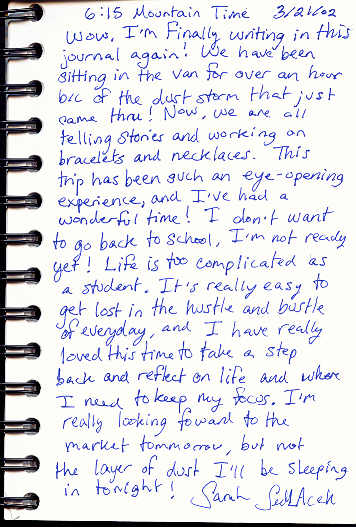 6:15 Mountain Time 3/21/02
Wow, I'm finally writing in this
journal again! We have been
sitting in the van for over an hour
b/c of the dust storm that just
came thru! Now, we are all
telling stories and working on
bracelets and necklaces. This
trip has been such an eye-opening
experience, and I've had a
wonderful time! I don't want
to go back to school, I'm not ready
yet! Life is too complicated as
a student. It's really easy to
get lost in the hustle and bustle
of everyday, and I have really
loved this time to take a step
back and reflect on life and where
I need to keep my focus. I'm
really looking foward to the
market tommorrow, but not
the layer of dust I'll be sleeping
in tonight! Sarah Sedlacek